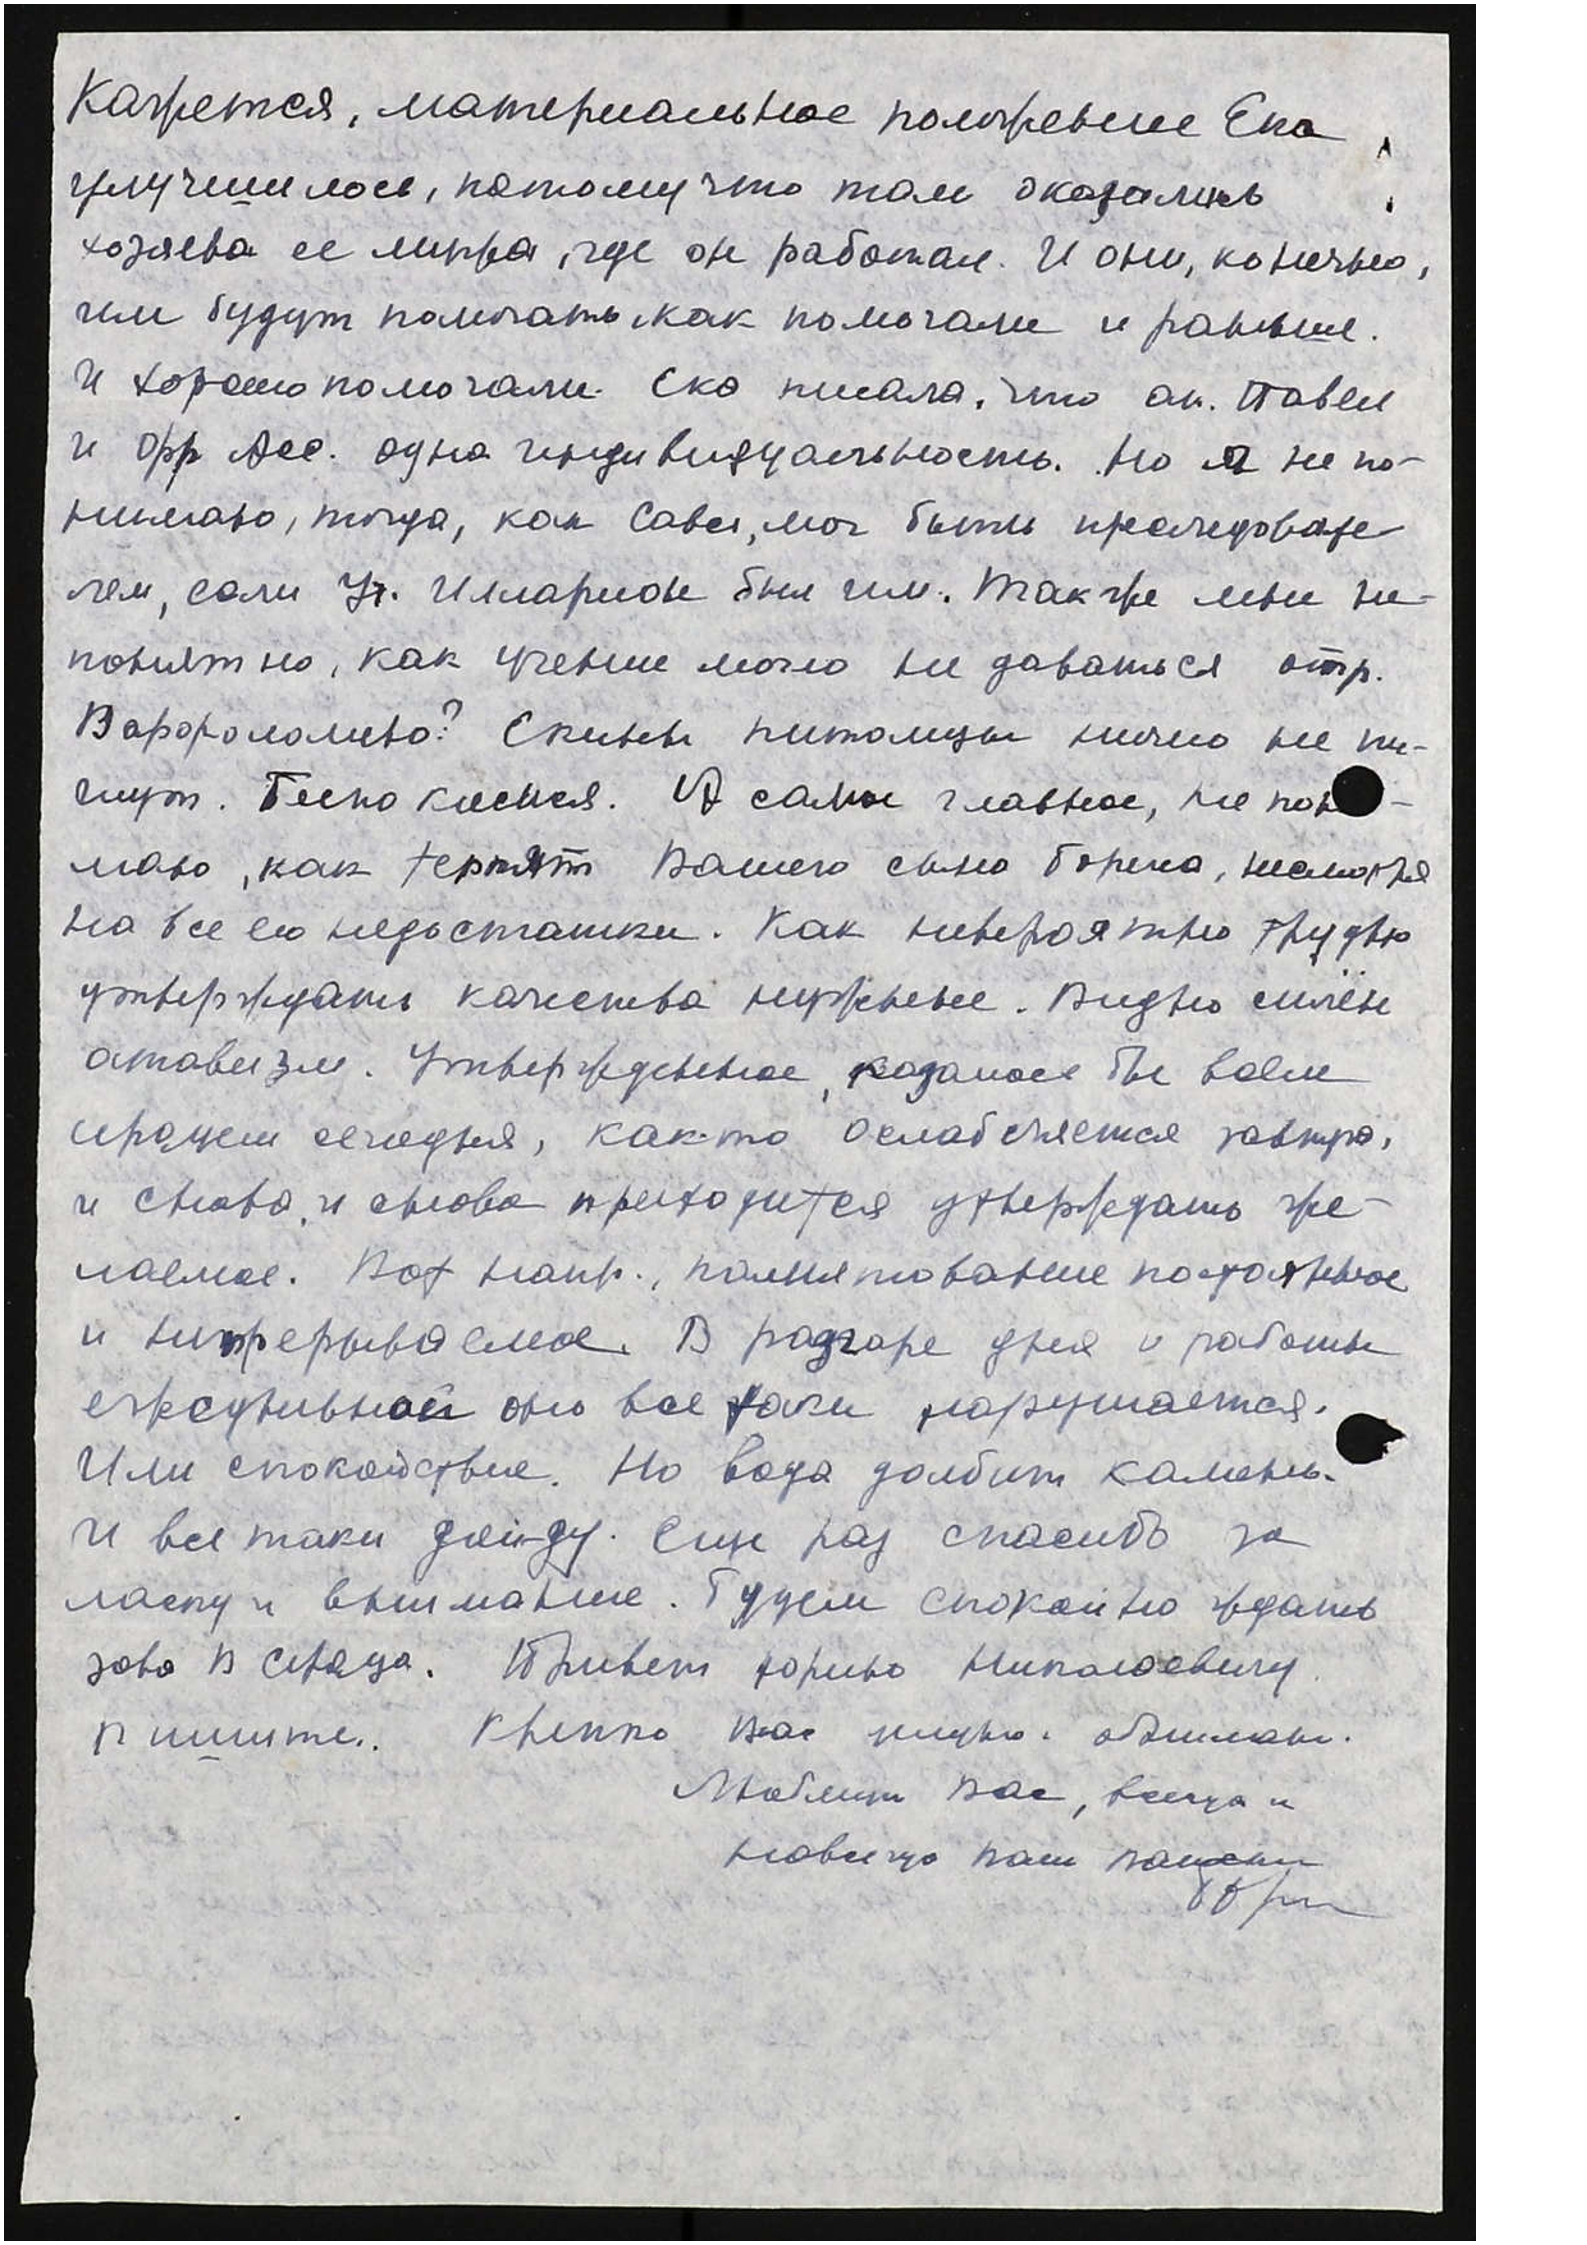 Кажется, материальное положение Ека
улучшилось, потому что там оказались
хозяева ее мужа, где он работал. И они, конечно,
им будут помогать, как помогали и раньше.
И хорошо помогали. Ека писала, что ап. Павел
и Фр Асс. одна индивидуальность. Но я не по-
нимаю, тогда, как Савл, мог быть преследовате
лем, если Уч. Илларион был им. Также мне не-
понятно, как учение могло не даваться
Варфоломею? Екины питомцы ничего не пи-
шут. Беспокоимся. А самое главное, не пони-
маю, как терпят Вашего сына Бориса, несмотря
на все его недостатки. Как невероятно трудно
утверждать качества нужные. Видно силён
атавизм. Утвержденное, казалось бы всем
сердцем сегодня, как-то ослабляется завтра,
и снова, и снова приходится утверждать же-
лаемое. Вот напр., памятование постоянное
и непрерываемое. В разгаре дня и работы
ежедневной оно все таки нарушается.
Или спокойствие. Но вода долбит камень.
И все таки дойду. Еще раз спасибо за
ласку и внимание. Будем спокойно ждать
зова В сюда. Привет Борису Николаевичу.
Пишите. Крепко Вас целую. обнимаю.
Любящ Вас, всегда и
навсегда Ваш